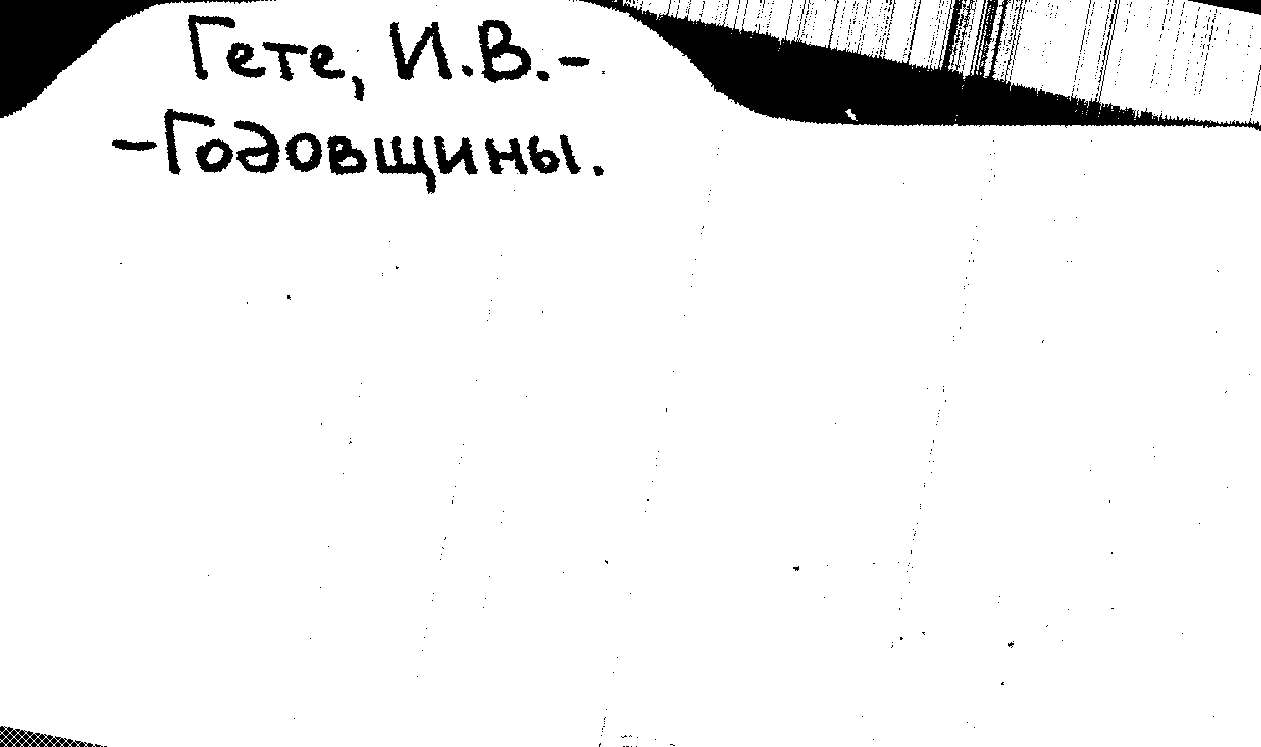 Гете, И.В.-
-Годовщины.